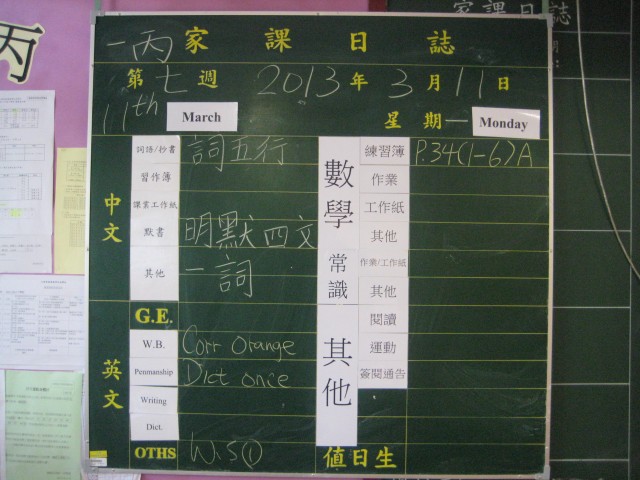 丙
家課日誌
一丙 家課日誌
第七週 2013年3月11日
11th March 星期一 Monday
中文
詞語/抄書 詞五行
習作簿
課堂工作紙
默書 明默四文
其他 一詞
英文
G.E.
W.B. Corr orange
Penmanship Dict once
Writing
Dict.
OTHS W.S①
數學
練習簿 P.34(1-6)A
作業
工作紙
其他
常識
作業/工作紙
其他
其他
閱讀
運動
簽閱通告
值日生